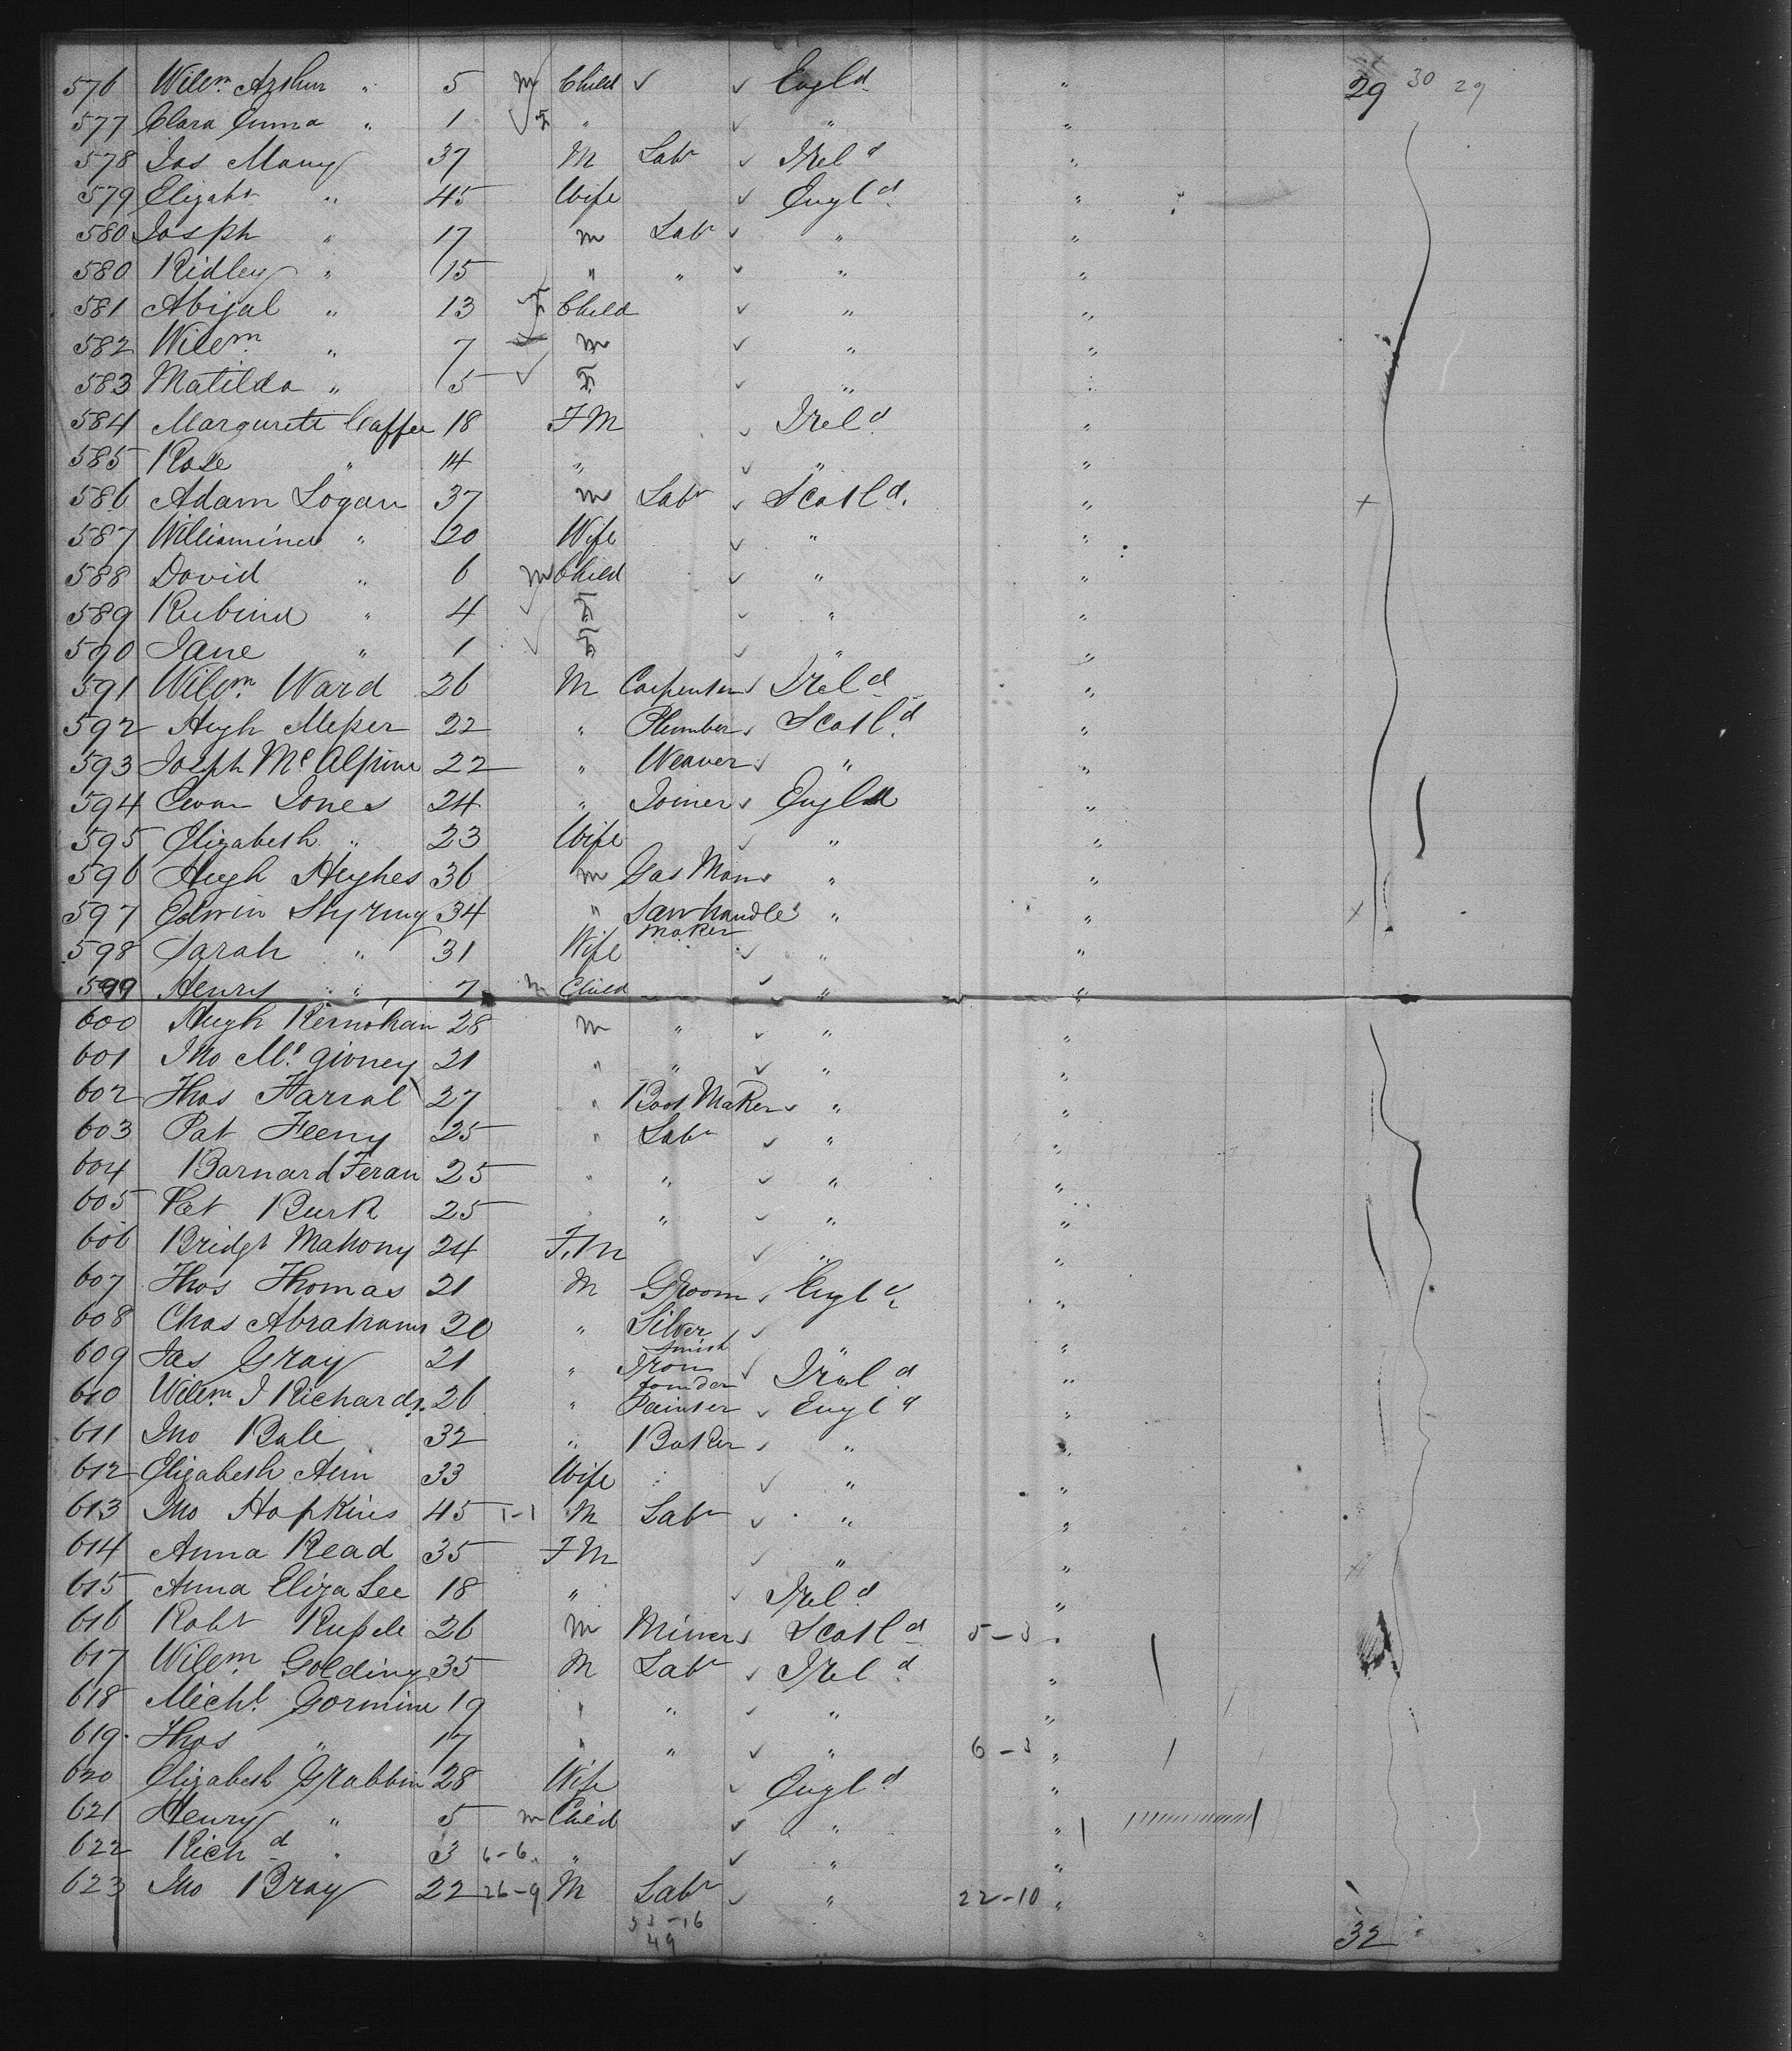 576 Willm. Arthur " 5 m Child ✓ ✓ Engld " 29 30 29
577 Clara Emma " 1 ✓ F " ✓ " "
578 Jas Many 37 M Labr ✓ Ireld "
579 Elizabt " 45 Wife ✓ Engld. "
580 Josph " 17 m Labr ✓ " "
580 Ridley " 15 " " ✓ " "
581 Abijal " 13 F Child ✓ " "
582 Willm " 7 m ✓ " "
583 Matilda " 5 ✓ F ✓ " "
584 Margurett Caffee 18 F M ✓ Ireld. "
585 Rose " 14 " ✓ " "
586 Adam Logan 37 m Labr ✓ Scotld. " x
587 Williamina " 20 Wife ✓ " "
588 David " 6 m Child ✓ " "
589 Rubina " 4 ✓ F ✓ " "
590 Jane " 1 ✓ F ✓ " "
591 Willm. Ward 26 M Carpenter ✓ Ireld "
592 Hugh Messer 22 " Plumber ✓ Scotld. "
593 Joseph Mc Alpine 22 " Weaver ✓ " "
594 Evan Jones 24 " Joiner ✓ Engld "
595 Elizabeth " 23 Wife ✓ " "
596 Hugh Hughes 36 m Gas Man ✓ " "
597 Edwin Styring 34 " Saw handle " " x
maker
598 Sarah " 31 Wife ✓ " "
599 Henry " 7 m Child ✓ " "
600 Hugh Kernohan 28 m " ✓ " "
601 Jno Mc. givney 21 " " ✓ " "
602 Thos Farral 27 " Boot Maker ✓ " "
603 Pat Feeny 25 " Labr ✓ " "
604 Barnard Feran 25 " " ✓ " "
605 Pat Burk 25 " " ✓ " "
606 Bridgt Mahony 24 F. M ✓ " "
607 Thos Thomas 21 M Groom ✓ Engld "
608 Chas Abrahams 20 " Silver ✓ " "
smith
609 Jas Gray 21 " Iron ✓ Ireld "
founder
610 Willm J Richards. 26 " Painter ✓ Engld "
611 Jno Bale 32 " Baker ✓ " "
612 Elizabeth Ann 33 Wife ✓ " "
613 Jno Hopkins 45 1-1 M Labr ✓ " "
614 Anna Read 35 F M ✓ " "
615 Anna Eliza Lee 18 " ✓ Ireld. "
616 Robt Russele 26 m Miner ✓ Scotld 5-3 "
617 Willm. Golding 35 M Labr ✓ Ireld. "
618 Michl. Gormine 19 " " ✓ " "
619. Thos " 17 " " ✓ " 6-3 "
620 Elizabeth Grabbin 28 Wife ✓ Engld "
621 Henry " 5 m Child ✓ " "
622 Richd " 3 6-6 " ✓ " "
623 Jno Bray 22 26-9 M Labr ✓ " 22-10 "
33-16
49 32